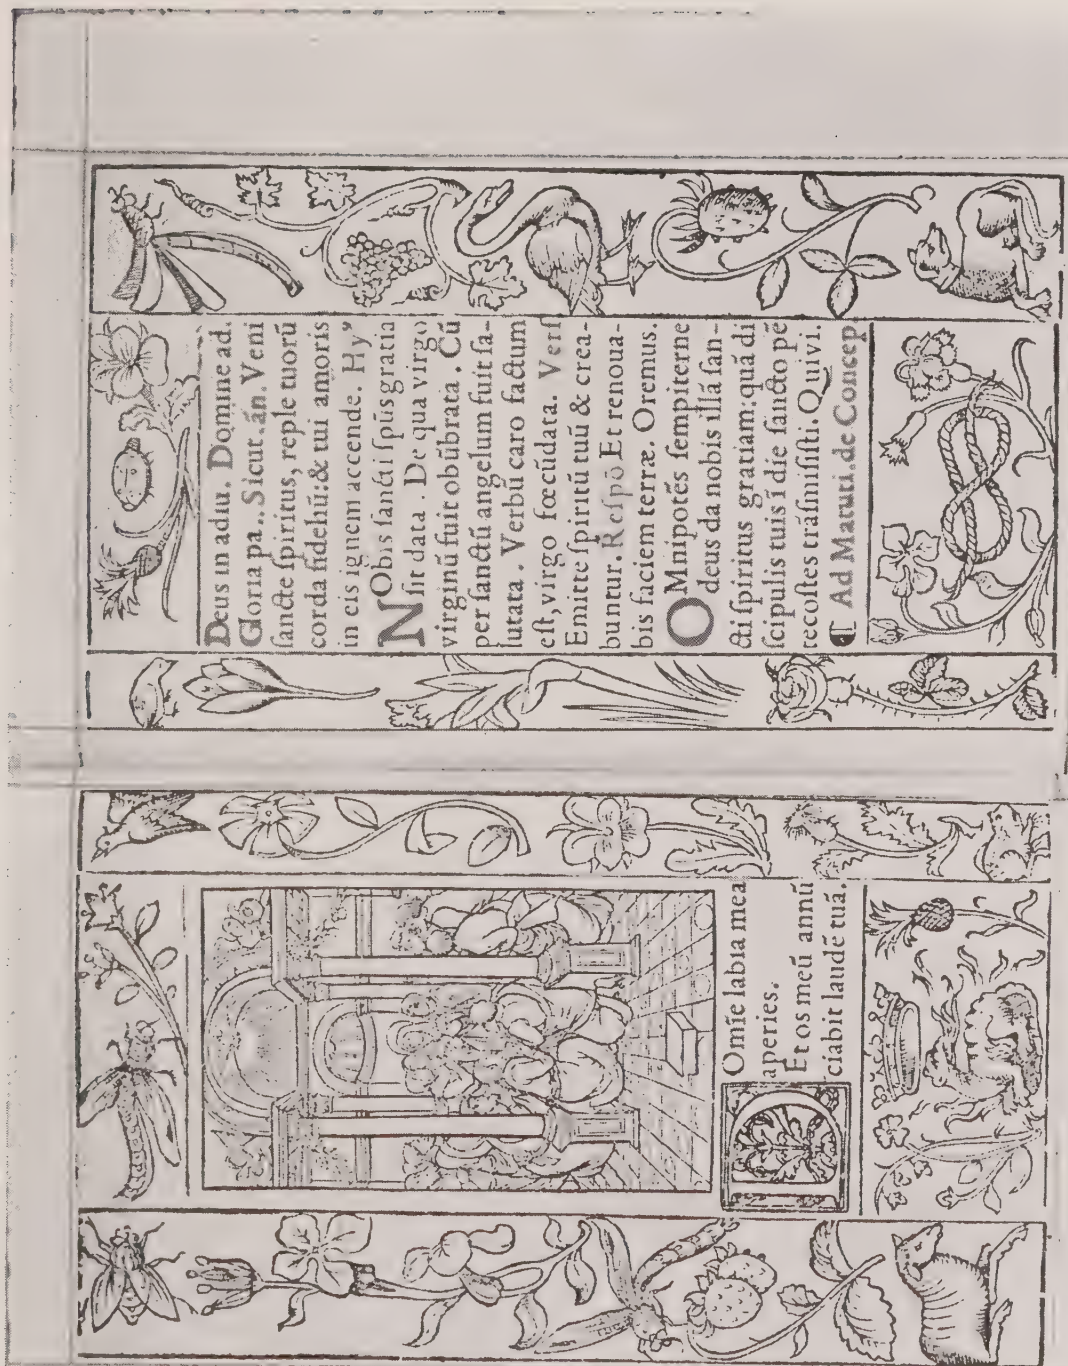 Omīe labia mea
aperies.
Et os meū annū
ciabit laudē tuā.
Deus in adiu. Domine ad.
Gloria pa.. Sicut. án. Veni
ſancte ſpiritus, reple tuorū
corda fidelíū: & tui amoris
in eis ignem accende. Hy,
NObis ſancti ſpūs gratia
ſit data. De qua virgo
virginū fuit obūbrata. Cū
per ſanctū angelum fuit ſa-
lutata. Verbū caro factum
eſt, virgo fœcūdata. Verſ
Emitte ſpiritū tuū & crea-
buntur. Reſpō Et renoua-
bis faciem terræ. Oremus.
OMnipotēs ſempiterne
deus da nobis illā ſan-
cti ſpiritus gratiam: quā di
ſcipulis tuis ī die ſancto pē
tecoſtes trāſmiſiſti. Qui vi.
¶ Ad Matuti. de Concep.